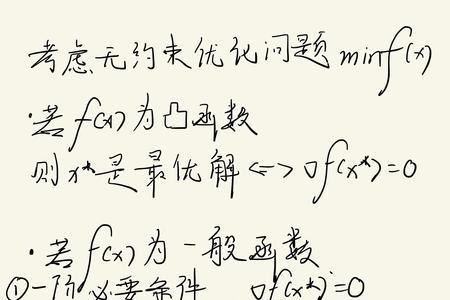 考虑无约束优化问题 min f(x)
·若 f(x) 为凸函数
则 x* 是最优解 <=> ∇f(x*)=0
·若 f(x) 为一般函数
①一阶必要条件 ∇f(x*)=0